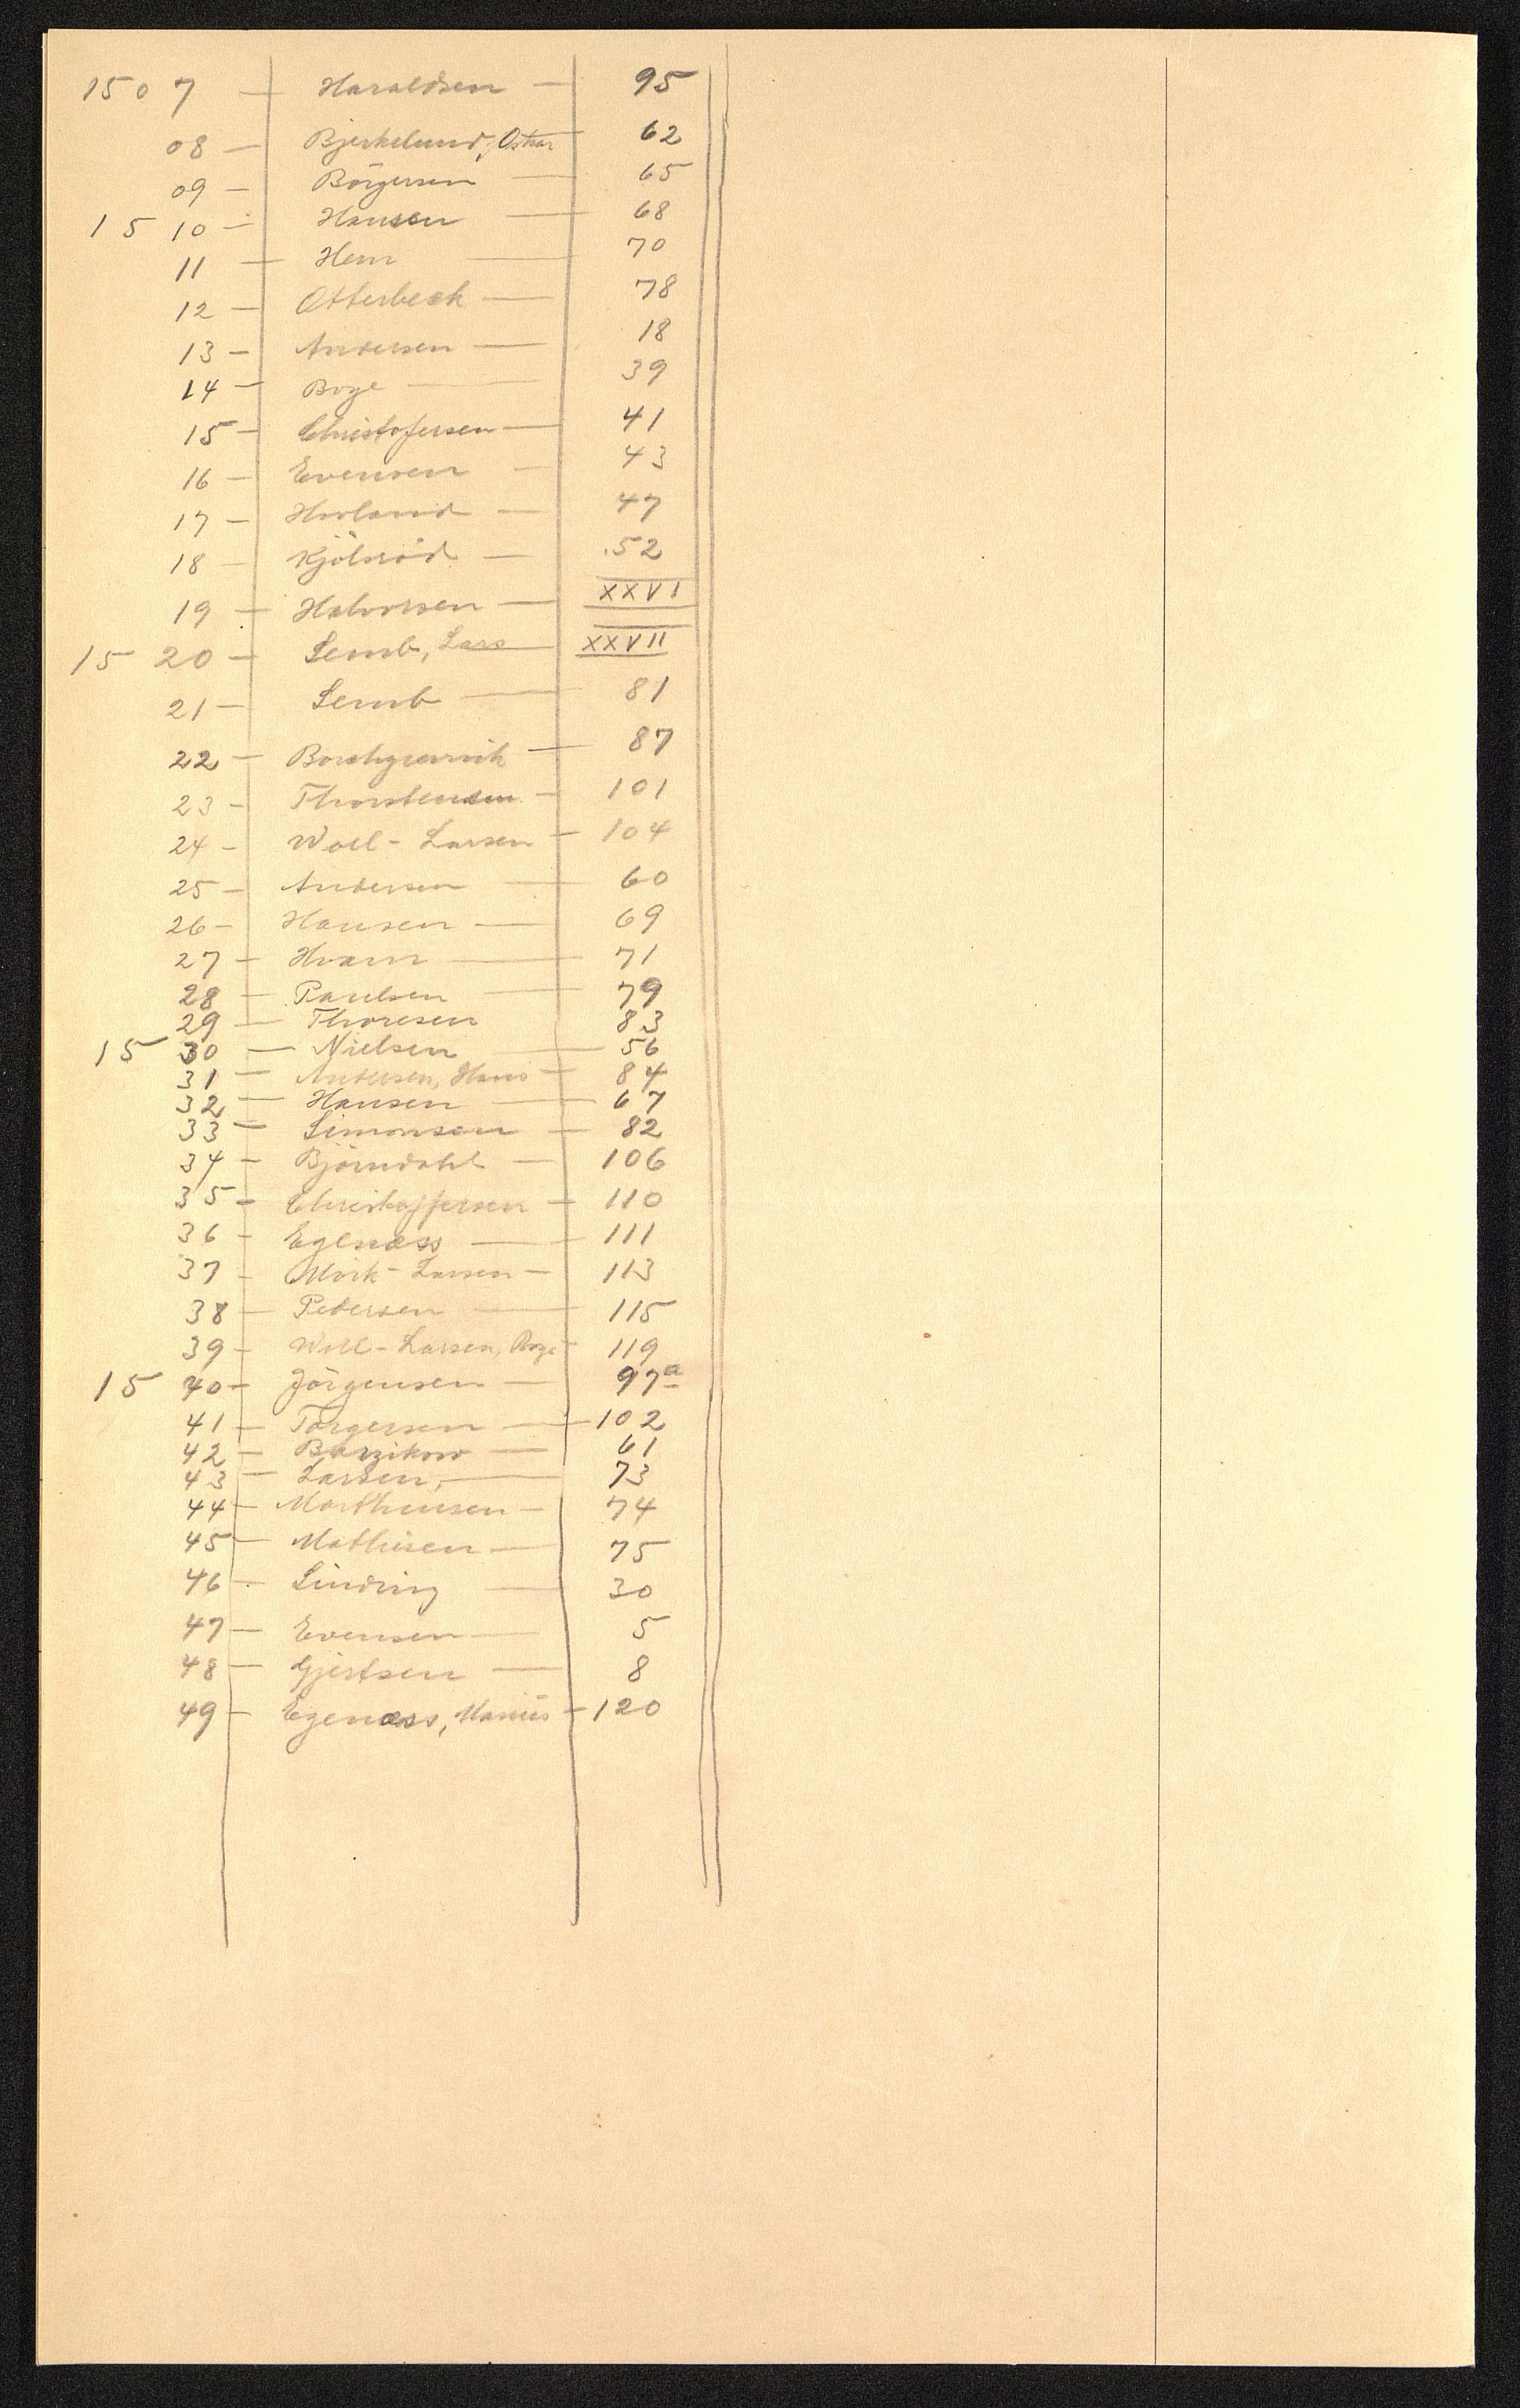 1507 — Haraldsen — 95
08 — Bjerkelund, Oskar 62
09 — Börgersen — 65
1510 — Hansen — 68
11 — Hem — 70
12 — Otterbeck — 78
13 — Andersen — 18
14 — Boge — 39
15 — Christofersen — 41
16 — Evensen — 43
17 — Hovland — 47
18 — Kjölnröd — 52
19 — Halvorsen — XXVI
1520 — Semb, Lars — XXVII
21 — Semb — 81
22 — Borchgrevink — 87
23 — Thorstensen — 101
24 — Woll-Larsen — 104
25 — Andersen — 60
26 — Hansen — 69
27 — Hvam — 71
28 — Paulsen — 79
29 — Thoresen 83
1530 — Nielsen — 56
31 — Andersen, Hans — 84
32 — Hansen — 67
33 — Simonsen — 82
34 — Björndahl — 106
35 — Christoffersen — 110
36 — Egenæss — 111
37 — Mörk-Larsen — 113
38 — Pedersen — 115
39 — Woll-Larsen, Boge — 119
1540 — Jörgensen — 97a
41 — Torgersen — 102
42 — Barzikow — 61
43 — Larsen, — 73
44 — Marthensen — 74
45 — Mathisen — 75
46 — Sinding — 30
47 — Evensen — 5
48 — Gjertsen — 8
49 — Egenæss, Marius — 120